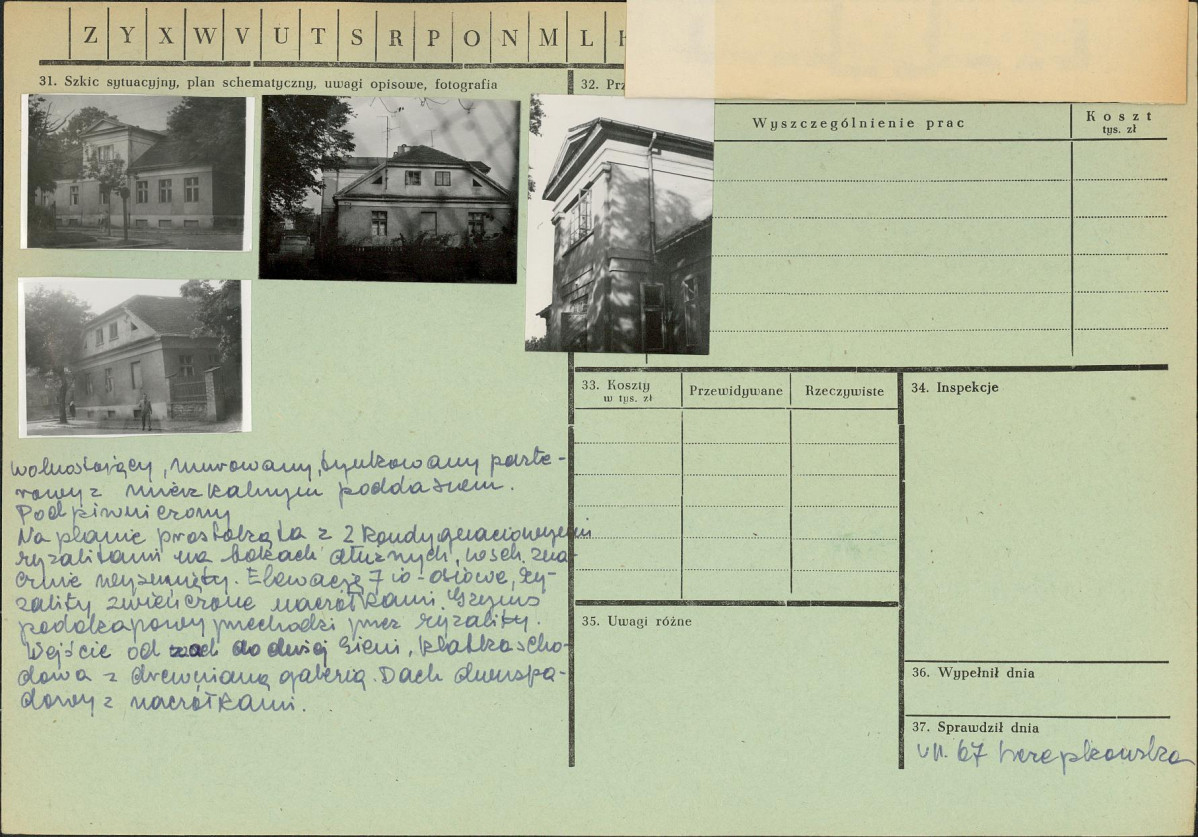 Z Y X W V U T S R P O N M L
31. Szkic sytuacyjny, plan schematyczny, uwagi opisowe, fotografia
32. Prz
Wyszczególnienie prac
Koszt
tys. zł
33. Koszty
w tys. zł
Przewidywane
Rzeczywiste
34. Inspekcje
wolnostojący, murowany, tynkowany parte-
rowy z mieszkalnym poddaszem.
Podpiwniczony
Na planie prostokąta z 2 kondygnacjowymi
ryzalitami na bokach dłużnych, wsch. zna-
cznie wysunięty. Elewacje 7 io-osiowe, ry-
zality zwieńczone naczółkami. Gzyms
podokapowy przechodzi przez ryzality.
Wejście od zach do dużej sieni, klatka scho-
dowa z drewnianą galerią. Dach dwuspa-
dowy z naczółkami.
35. Uwagi różne
36. Wypełnił dnia
37. Sprawdził dnia
VII. 67